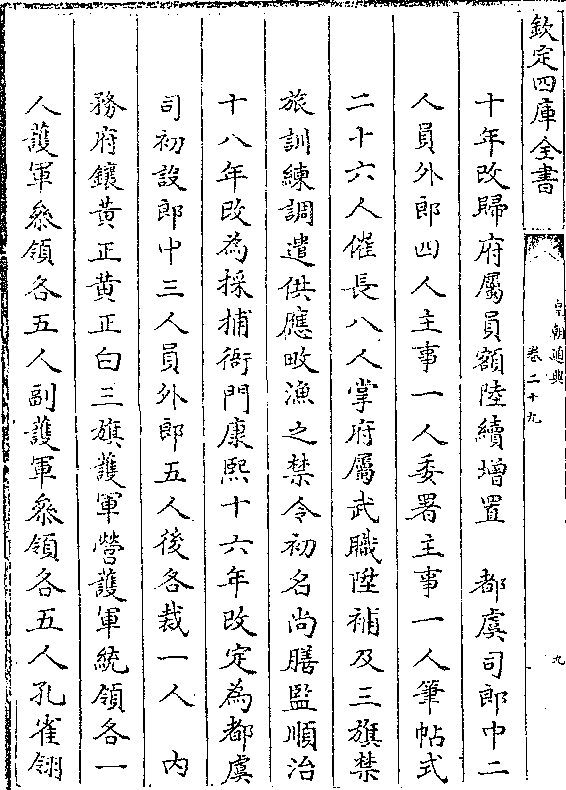 欽定四庫全書
皇朝通典
卷二十九
九
十年改歸府屬員額陸續增置　都虞司郎中二
人員外郎四人主事一人委署主事一人筆帖式
二十六人催長八人掌府屬武職陞補及三旗禁
旅訓練調遣供應畋漁之禁令初名尚膳監順治
十八年改為採捕衙門康熙十六年改定為都虞
司初設郎中三人員外郎五人後各裁一人　內
務府鑲黃正黃正白三旗護軍營護軍統領各一
人護軍叅領各五人副護軍叅領各五人孔雀翎